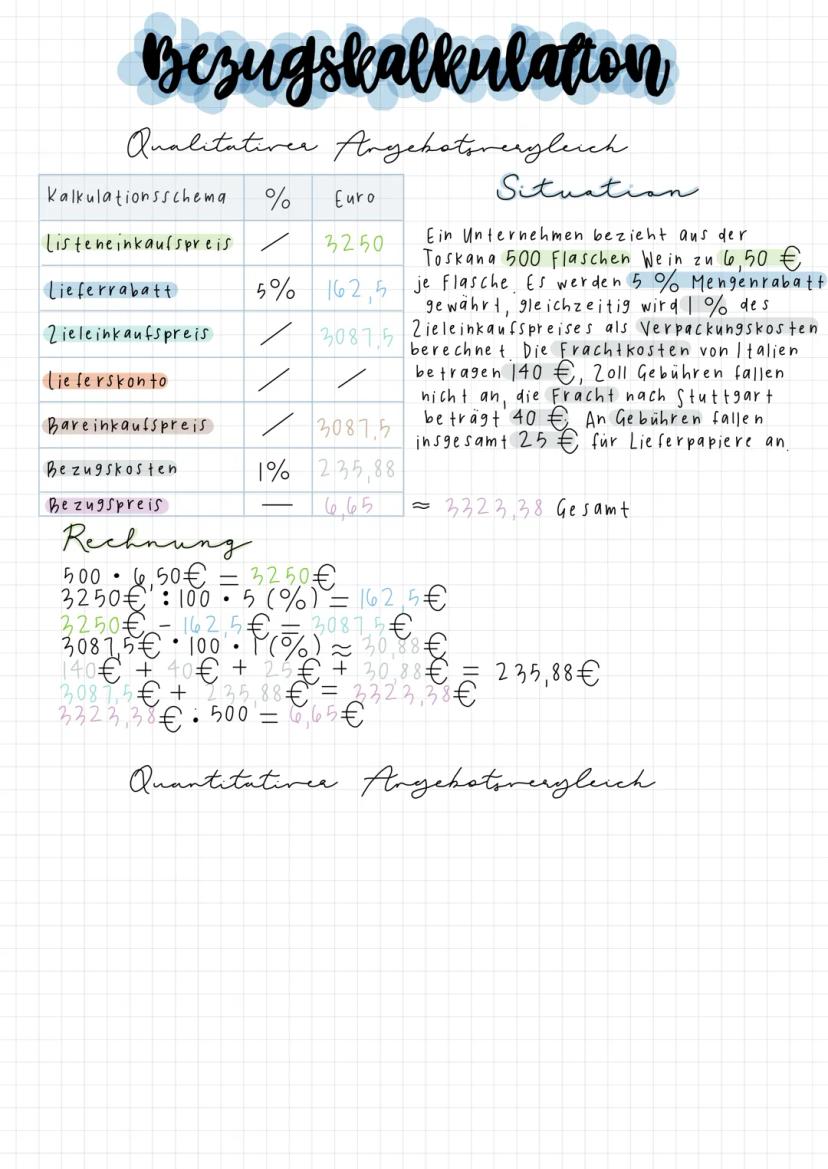 Bezugskalkulation
Qualitativer Angebotsvergleich
Kalkulationsschema % Euro
Listeneinkaufspreis / 3250
Lieferrabatt 5% 162,5
Zieleinkaufspreis / 3087,5
Lieferskonto / /
Bareinkaufspreis / 3087,5
Bezugskosten 1% 235,88
Bezugspreis — 6,65 ≈ 3323,38 Gesamt
Situation
Ein Unternehmen bezieht aus der
Toskana 500 Flaschen Wein zu 6,50 €
je Flasche. Es werden 5 % Mengenrabatt
gewährt, gleichzeitig wird 1 % des
Zieleinkaufspreises als Verpackungskosten
berechnet. Die Frachtkosten von Italien
betragen 140 €, Zoll Gebühren fallen
nicht an, die Fracht nach Stuttgart
beträgt 40 €. An Gebühren fallen
insgesamt 25 € für Lieferpapiere an.
Rechnung
500 • 6,50€ = 3250€
3250€ : 100 • 5 (%) = 162,5€
3250€ - 162,5€ = 3087,5€
3087,5€ • 100 • 1 (%) ≈ 30,88€
140€ + 40€ + 25€ + 30,88€ = 235,88€
3087,5€ + 235,88€ = 3323,38€
3323,38€ : 500 = 6,65€
Quantitativer Angebotsvergleich